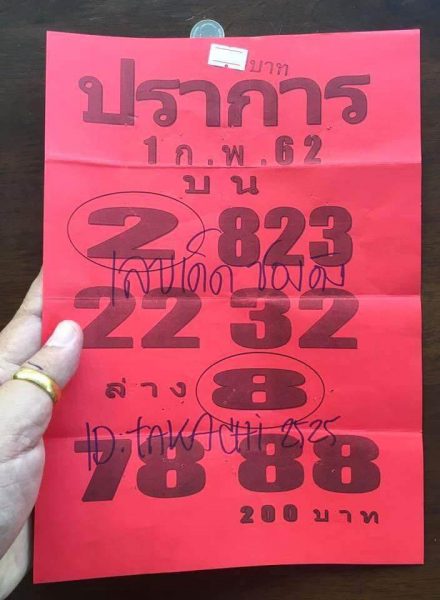 บาท
ปราการ
1 ก.พ.62
บน
2 823
เลขเด็ด ชองดัง
22 32
ล่าง 8
ID.TAKACHI 2525
78 88
200 บาท